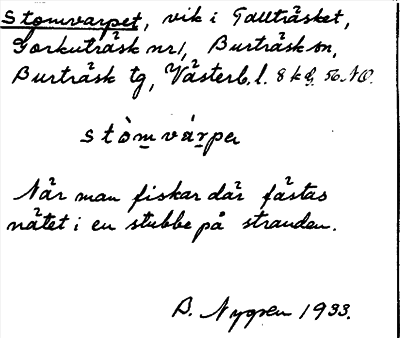 Stomvarpet, vik i Tallträsket,
Gorkuträsk nr 1, Burträsk sn,
Burträsk tg, Västerb. l. 8 k d. 56 NO.
stòmvárpə
När man fiskar där fästas
nätet i en stubbe på stranden.
B. Nygren 1933.